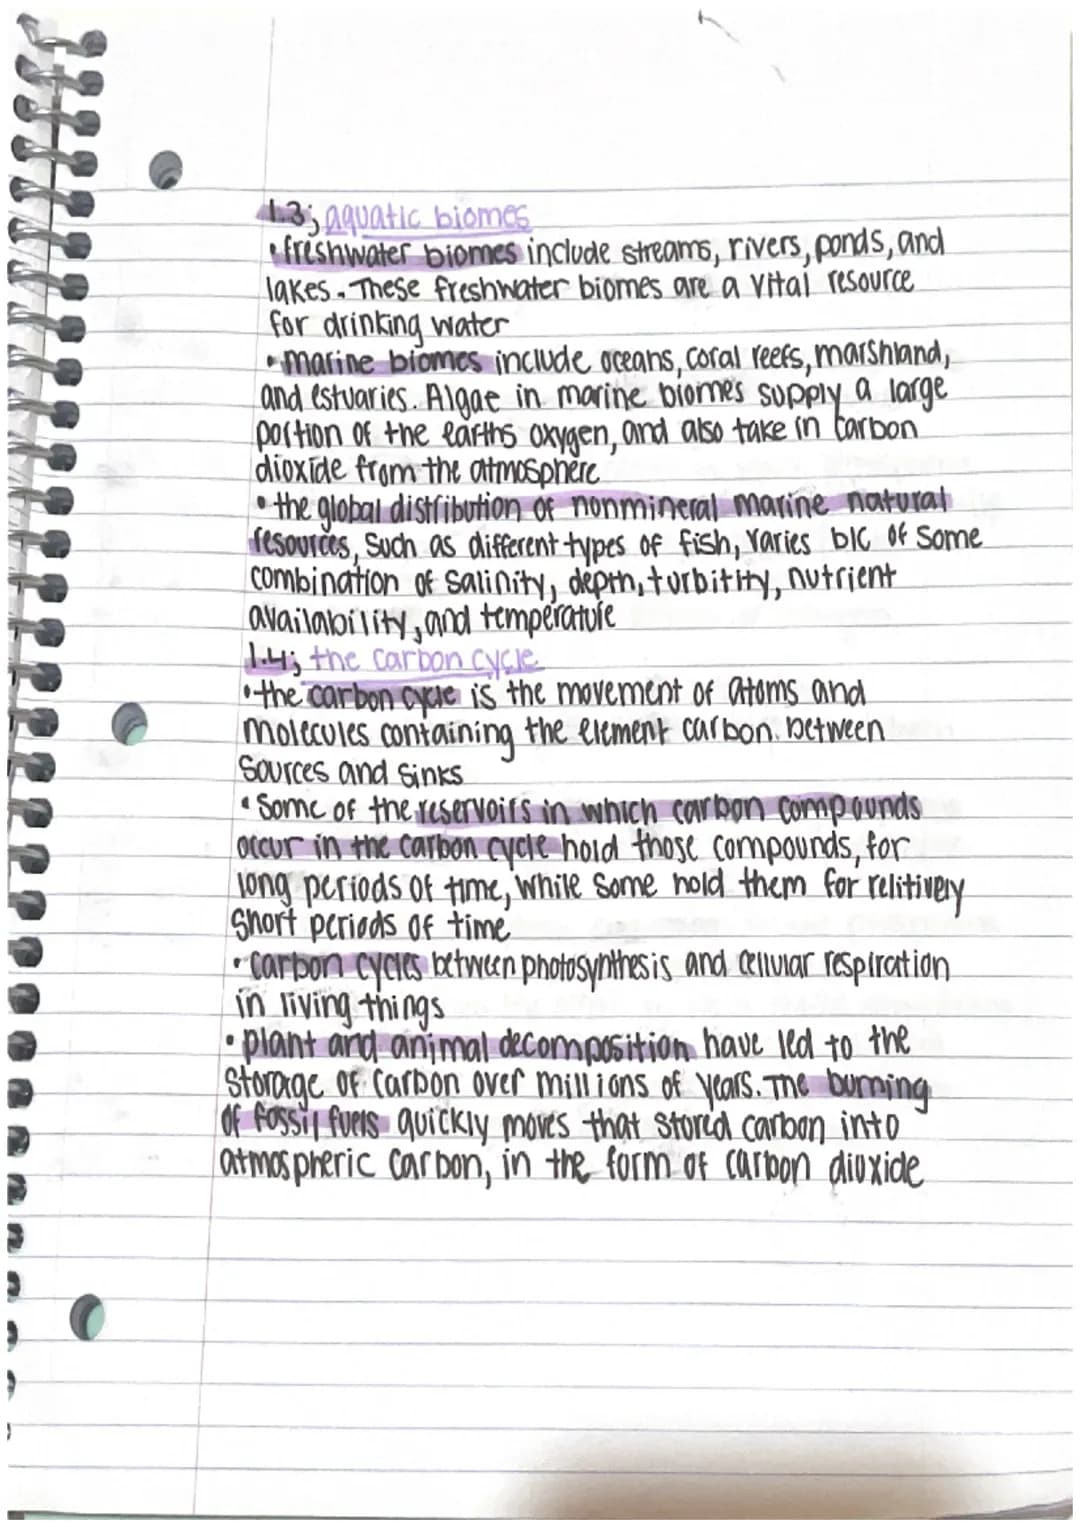 1.3; aquatic biomes
• freshwater biomes include streams, rivers, ponds, and
lakes. These freshwater biomes are a vital resource
for drinking water
• marine biomes include oceans, coral reefs, marshland,
and estuaries. Algae in marine biomes supply a large
portion of the earths oxygen, and also take in carbon
dioxide from the atmosphere
• the global distribution of nonmineral marine natural
resources, such as different types of fish, varies b/c of some
combination of salinity, depth, turbitity, nutrient
availability, and temperature
1.4; the carbon cycle
• the carbon cycle is the movement of atoms and
molecules containing the element carbon. between
sources and sinks
• Some of the reservoirs in which carbon compounds
occur in the carbon cycle hold those compounds, for
long periods of time, while some hold them for relitivery
short periods of time
• carbon cycles between photosynthesis and cellular respiration
in living things
• plant and animal decomposition have led to the
storage of carbon over millions of years. The burning
of fossil fuels quickly moves that stored carbon into
atmospheric carbon, in the form of carbon dioxide